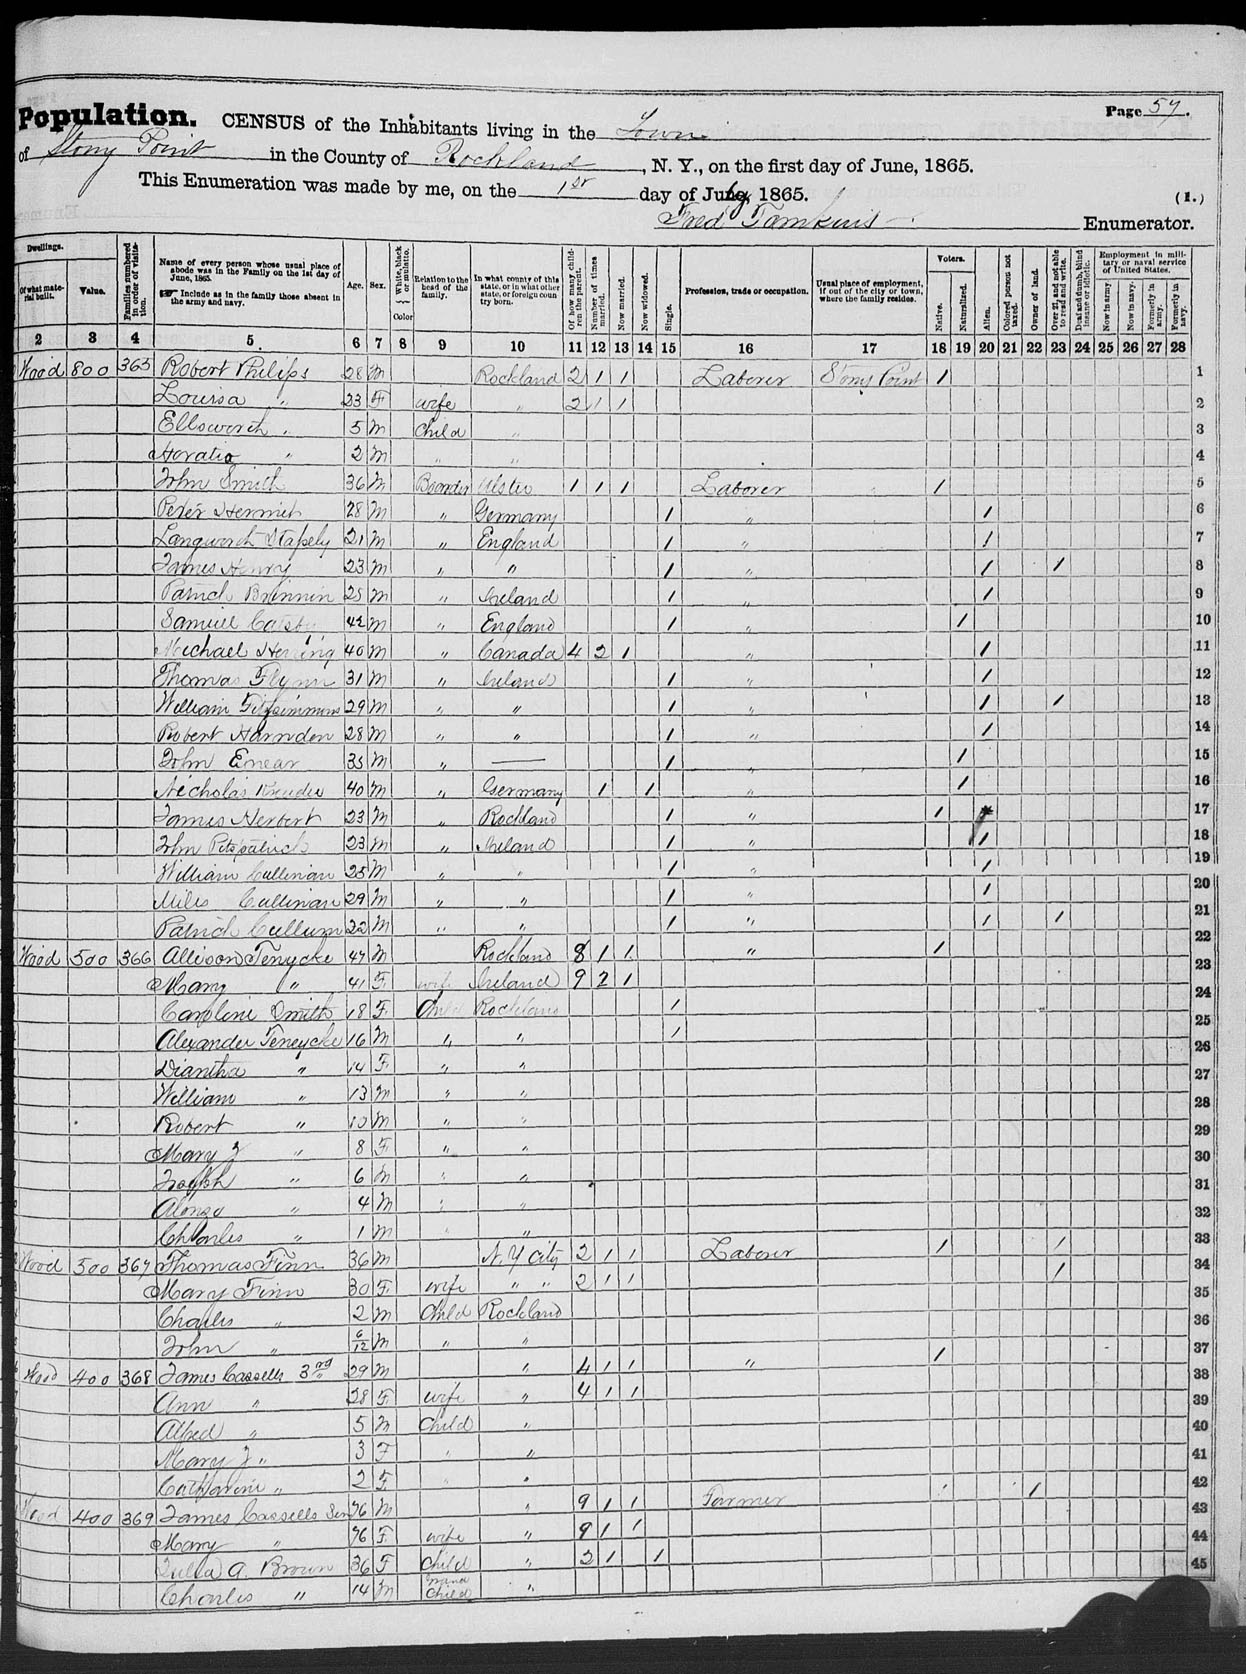 Page 57.
Population. CENSUS of the Inhabitants living in the Town
of Stony Point in the County of Rockland, N. Y., on the first day of June, 1865.
This Enumeration was made by me, on the 1st day of July, 1865. (1.)
Fred Tomkins Enumerator.
Dwellings. Of what material built. Value. Families numbered in order of visitation. Name of every person whose usual place of abode was in the Family on the 1st day of June, 1865. Include as in the family those absent in the army and navy. Age. Sex. White, black or mulatto. Color Relation to the head of the family. In what county of this state, or in what other state, or foreign country born. Of how many children the parent. Number of times married. Now married. Now widowed. Single. Profession, trade or occupation. Usual place of employment, if out of the city or town, where the family resides. Voters. Native. Naturalized. Alien. Colored persons not taxed. Owner of land. Over 21, and not able to read and write. Deaf and dumb, blind insane or idiotic. Employment in military or naval service of United States. Now in army. Now in navy. Formerly in army. Formerly in navy.
2 3 4 5 6 7 8 9 10 11 12 13 14 15 16 17 18 19 20 21 22 23 24 25 26 27 28
Wood 800 365 Robert Philips 28 M Rockland 2 1 1 Laborer Stony Point 1 1
Louisa " 23 F wife " 2 1 1 2
Ellsworth " 5 M Child " 3
Horatio " 2 M " " 4
John Smith 36 M Boarder Ulster 1 1 1 Laborer 1 5
Peter 28 M " Germany 1 " 1 6
Langworth Stapely 21 M " England 1 " 1 7
James Henry 23 M " " 1 " 1 1 8
Patrick Brinnin 25 M " Ireland 1 " 1 9
Samuel 42 M " England 1 1 10
Michael 40 M " Canada 4 2 1 " 1 11
Thomas Flynn 31 M " Ireland 1 " 1 12
William Fitzsimmons 29 M " " 1 " 1 1 13
Robert Harnden 28 M " " 1 " 1 14
John Enear 35 M " — 1 " 1 15
Nicholas 40 M " Germany 1 1 " 1 16
James Herbert 23 M " Rockland 1 " 1 17
John Fitspatrick 23 M " Ireland 1 " 1 18
William Cullinan 25 M " " 1 " 1 19
Miles Cullinan 29 M " " 1 " 1 20
Patrick Cullum 22 M " " 1 " 1 1 21
Wood 500 366 Allison Tenycke 47 M Rockland 8 1 1 " 1 22
Mary " 41 F wife Ireland 9 2 1 23
Caroline Smith 18 F Child Rockland 1 24
Alexander Teneycke 16 M " " 1 25
Diantha " 14 F " " 26
William " 13 M " " 27
Robert " 10 M " " 28
Mary J " 8 F " " 29
Joseph " 6 M " " 30
Alonzo " 4 M " " 31
Charles " 1 M " " 32
Wood 500 367 Thomas Finn 36 M N. Y City 2 1 1 Laborer 1 1 33
Mary Finn 30 F wife " " 2 1 1 1 34
Charles " 2 M Child Rockland 35
John " 6/12 M " " 36
Wood 400 368 James Cassells 3rd 29 M " 4 1 1 " 1 37
Ann " 28 F wife " 4 1 1 38
Alfred " 5 M Child " 40
Mary J " 3 F " " 41
Catharine " 2 F " " 42
Wood 400 369 James Cassells Sen 76 M " 9 1 1 Farmer 1 1 43
Mary " 76 F wife " 9 1 1 44
Julia A. Brown 36 F Child " 2 1 1 45
Charles " 14 M Grand Child "